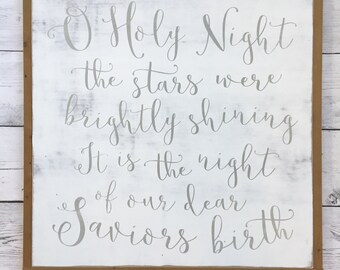 O Holy Night
the stars were
brightly shining
It is the night
of our dear
Saviors birth